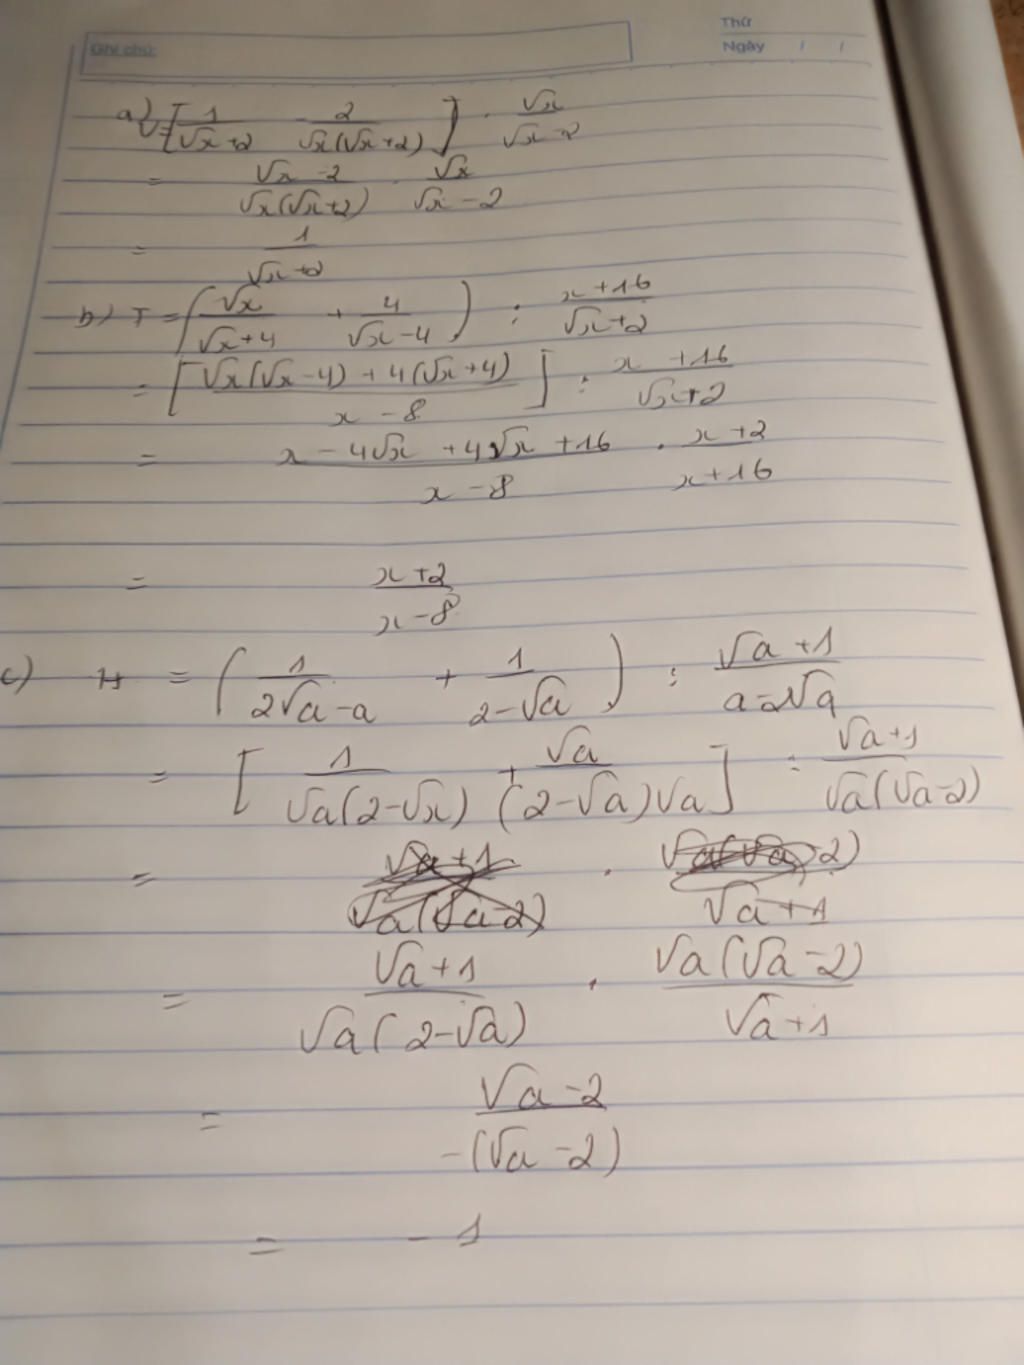 Thứ
Ghi chú:
Ngày / /
a) V = [1/(√x+2) - 2/(√x(√x+2))] · √x/(√x-2)
= (√x-2)/(√x(√x+2)) · √x/(√x-2)
= 1/(√x+2)
b) T = (√x/(√x+4) + 4/(√x-4)) : (x+16)/(√x+2)
= [(√x(√x-4) + 4(√x+4))/(x-8)] : (x+16)/(√x+2)
= (x-4√x+4√x+16)/(x-8) · (x+2)/(x+16)
= (x+2)/(x-8)
c) H = (1/(2√a-a) + 1/(2-√a)) : (√a+1)/(a-2√a)
= [1/(√a(2-√x)) + √a/((2-√a)√a)] : (√a+1)/(√a(√a-2))
= (√a+1)/(√a(√a-2)) · (√a(√a-2))/(√a+1)
= (√a+1)/(√a(2-√a)) · (√a(√a-2))/(√a+1)
= (√a-2)/(-(√a-2))
= -1